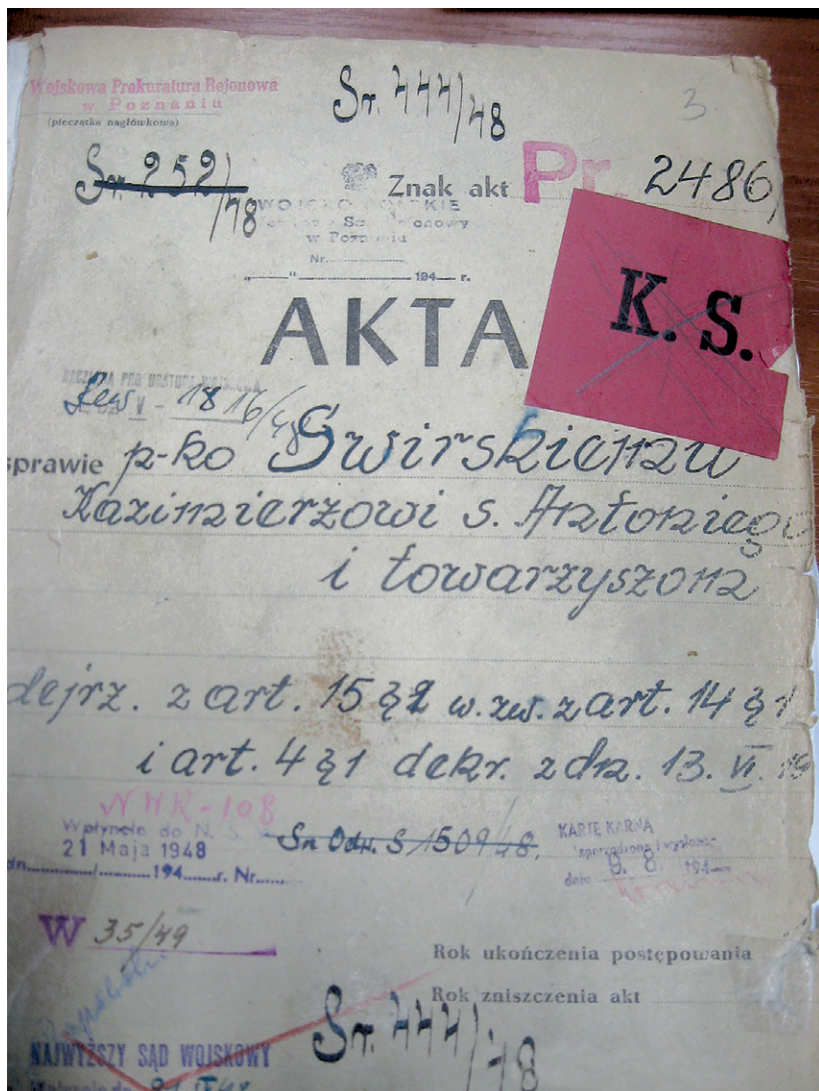 Wojskowa Prokuratura Rejonowa
w Poznaniu
(pieczątka nagłówkowa)
Sr. 444/48
3.
Sr. 252/48
Znak akt Pr. 2486/
WOJSKO POLSKIE
Wojskowy Sąd Rejonowy
w Poznaniu
Nr.
„ “ 194 r.
K. S.
AKTA
NACZELNA PROKURATURA WOJSKOWA
V - 1816/48
sprawie p-ko Swirskiemu
Kazimierzowi s. Antoniego
i towarzyszom
dejrz. z art. 15 § 2 w. zw. z art. 14 § 1
i art. 4 § 1 dekr. z dn. 13. VI. 19
NHR-108
Wpłynęło do N. S.
21 Maja 1948
dn. 194 r. Nr.
Sn Odw. S 1509/48.
KARTĘ KARNĄ
sporządzono i wysłano
dnia 9. 8. 194
W 35/49
Rok ukończenia postępowania
Rok zniszczenia akt
Sr. 444/48
NAJWYŻSZY SĄD WOJSKOWY